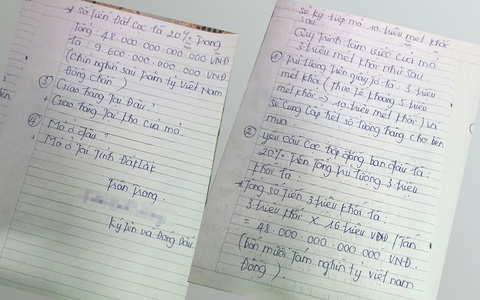 * Số tiền Đặt Cọc là 20% trong
Tổng: 48.000.000.000.000 VNĐ
là: 9.600.000.000.000 VNĐ
(Chín nghìn sáu trăm tỷ Việt Nam
đồng chẵn)
③ Giao hàng Tại Đâu?
- Giao hàng tại kho của mỏ.
④ Mỏ ở đâu?
- Mỏ ở Tại Tỉnh Đắk Lắk
Trân Trọng.
Ký tên và Đóng Dấu
sẽ ký tiếp mỏ 10 triệu mét khối
sau
Quy trình làm việc của mỏ
3 triệu mét khối như sau
① Trữ lượng trên giấy tờ là: 3 triệu
mét khối (Thực tế khoảng 5 triệu
mét khối → 10 triệu mét khối) và
sẽ cung cấp hết số lượng hàng cho bên
mua.
② yêu cầu cọc hợp đồng ban đầu là:
20% trên tổng trữ lượng 3 triệu
khối là:
* Tổng số tiền 3 triệu khối là:
3 triệu khối x 16 triệu VNĐ / Tấn
= 48.000.000.000.000 VNĐ.
(bốn mươi tám nghìn tỷ việt nam
Đồng).